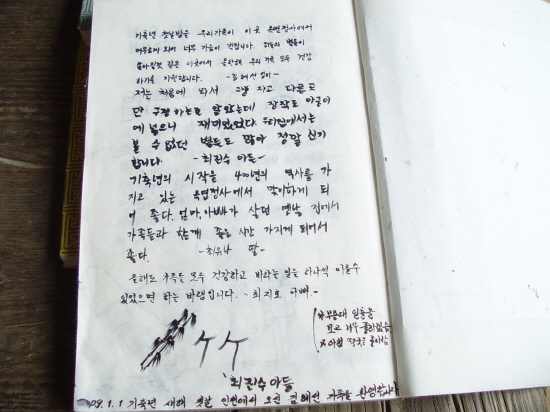 기축년 첫날밤을 우리가족이 이곳 옥연정사에서
머무르게 되어 너무 가슴이 벅찹니다. 하늘의 별들이
쏟아질것 같은 이곳에서 올한해 우리 가족 모두 건강
하기를 기원합니다. -김혜선 엄마-
저는 처음에 와서 그냥 자고 다른곳
만 구경하는줄 알았는데 장작도 아궁이
에 넣으니 재미있었다. 우리집에서는
볼 수 없던 별들도 많아 정말 신기
합니다. -최진수 아들-
기축년의 시작을 400년의 역사를 가
지고 있는 옥연정사에서 맞이하게 되
어 좋다. 엄마, 아빠가 살던 옛날 집에서
가족들과 함께 좋은 시간 가지게 되어서
좋다. -최유나 딸-
올해도 가족들 모두 건강하고 바라는 일들 하나씩 이룰수
있었으면 하는 바램입니다. -최지호 아빠-
보고 너무 놀라웠음
최진수 아들
09. 1. 1 기축년 새해 첫날 인천에서 오신 김혜선 가족을 환영합니다